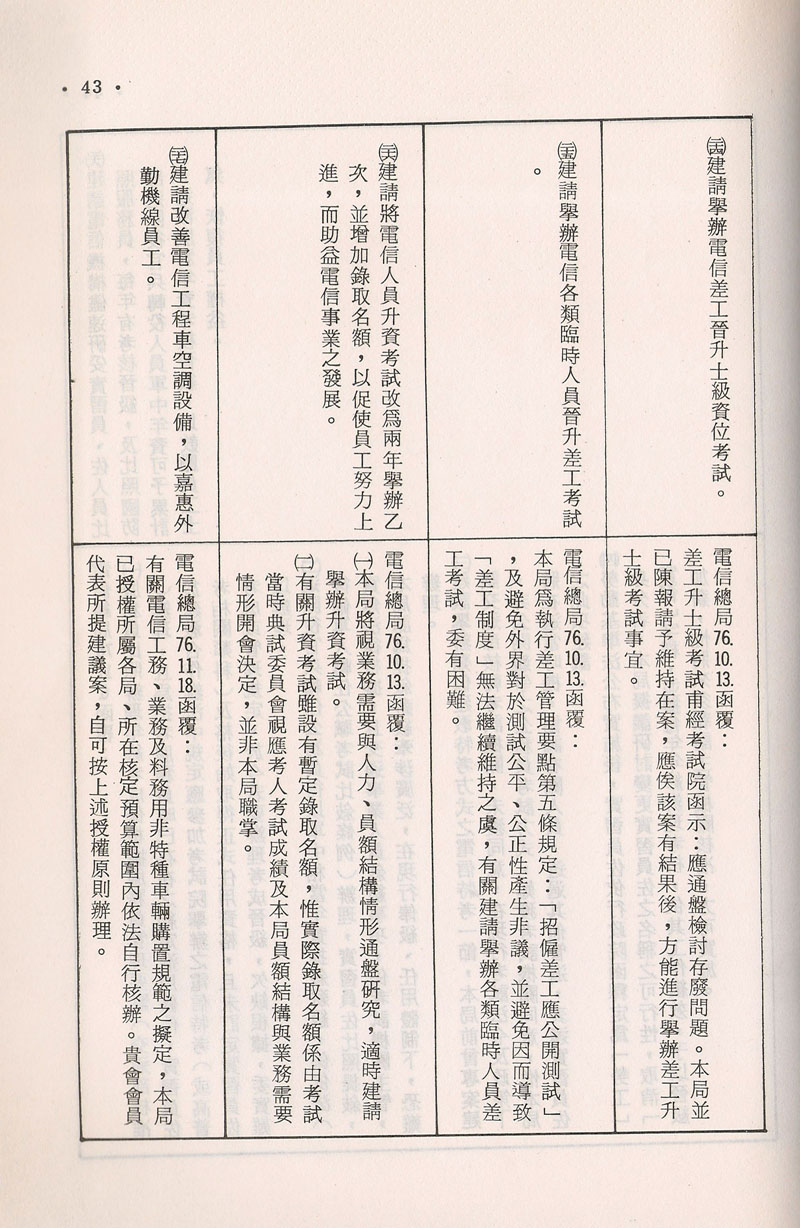 ・43・
建請舉辦電信差工晉升士級資位考試。
電信總局76.10.13.函覆：
差工升士級考試甫經考試院函示：應通盤檢討存廢問題。本局並
已陳報請予維持在案，應俟該案有結果後，方能進行舉辦差工升
士級考試事宜。
建請舉辦電信各類臨時人員晉升差工考試
。
電信總局76.10.13.函覆：
本局為執行差工管理要點第五條規定：「招僱差工應公開測試」
，及避免外界對於測試公平、公正性產生非議，並避免因而導致
「差工制度」無法繼續維持之虞，有關建請舉辦各類臨時人員差
工考試，委有困難。
建請將電信人員升資考試改為兩年舉辦乙
次，並增加錄取名額，以促使員工努力上
進，而助益電信事業之發展。
電信總局76.10.13.函覆：
㈠本局將視業務需要與人力、員額結構情形通盤研究，適時建請
舉辦升資考試。
㈡有關升資考試雖設有暫定錄取名額，惟實際錄取名額係由考試
當時典試委員會視應考人考試成績及本局員額結構與業務需要
情形開會決定，並非本局職掌。
建請改善電信工程車空調設備，以嘉惠外
勤機線員工。
電信總局76.11.18.函覆：
有關電信工務、業務及料務用非特種車輛購置規範之擬定，本局
已授權所屬各局、所在核定預算範圍內依法自行核辦。貴會會員
代表所提建議案，自可按上述授權原則辦理。